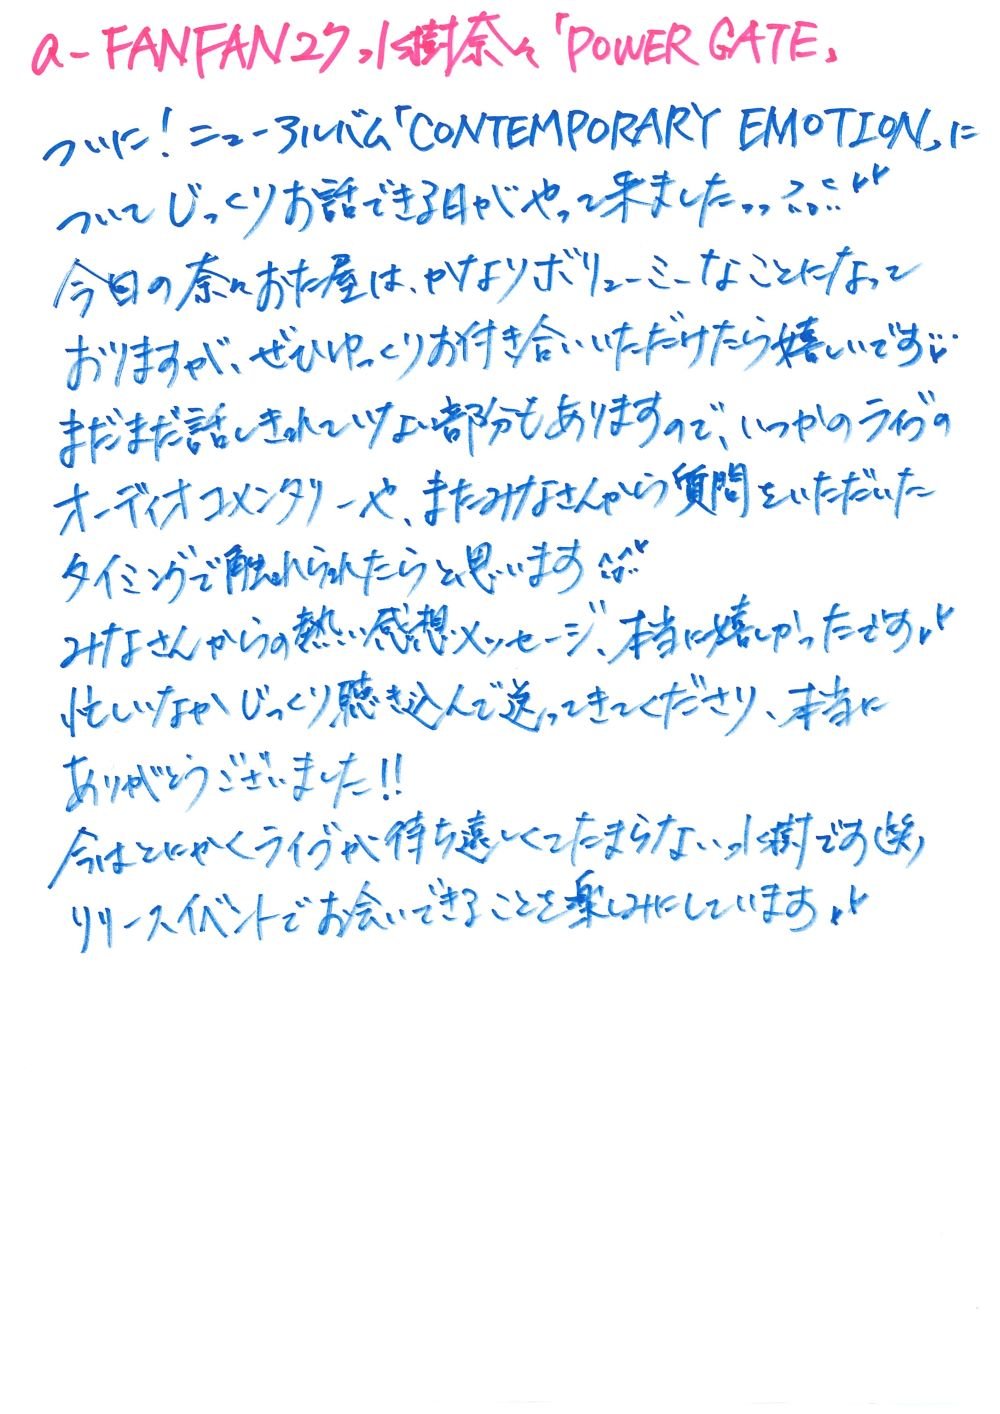 a-FANFAN27 水樹奈々「POWER GATE」
ついに！ニューアルバム「CONTEMPORARY EMOTION」に
ついてじっくりお話できる日がやって来ました
今日の奈々おた屋は、かなりボリューミーなことになって
おりますが、ぜひゆっくりお付き合いいただけたら嬉しいです
まだまだ話しきれていない部分もありますので、いつかのライヴの
オーディオコメンタリーや、またみなさんから質問をいただいた
タイミングで触れられたらと思います
みなさんからの熱い感想メッセージ、本当に嬉しかったです
忙しいなかじっくり聴き込んで送ってきてくださり、本当に
ありがとうございました!!
今はとにかくライヴが待ち遠しくてたまらない水樹です(笑)
リリースイベントでお会いできることを楽しみにしています